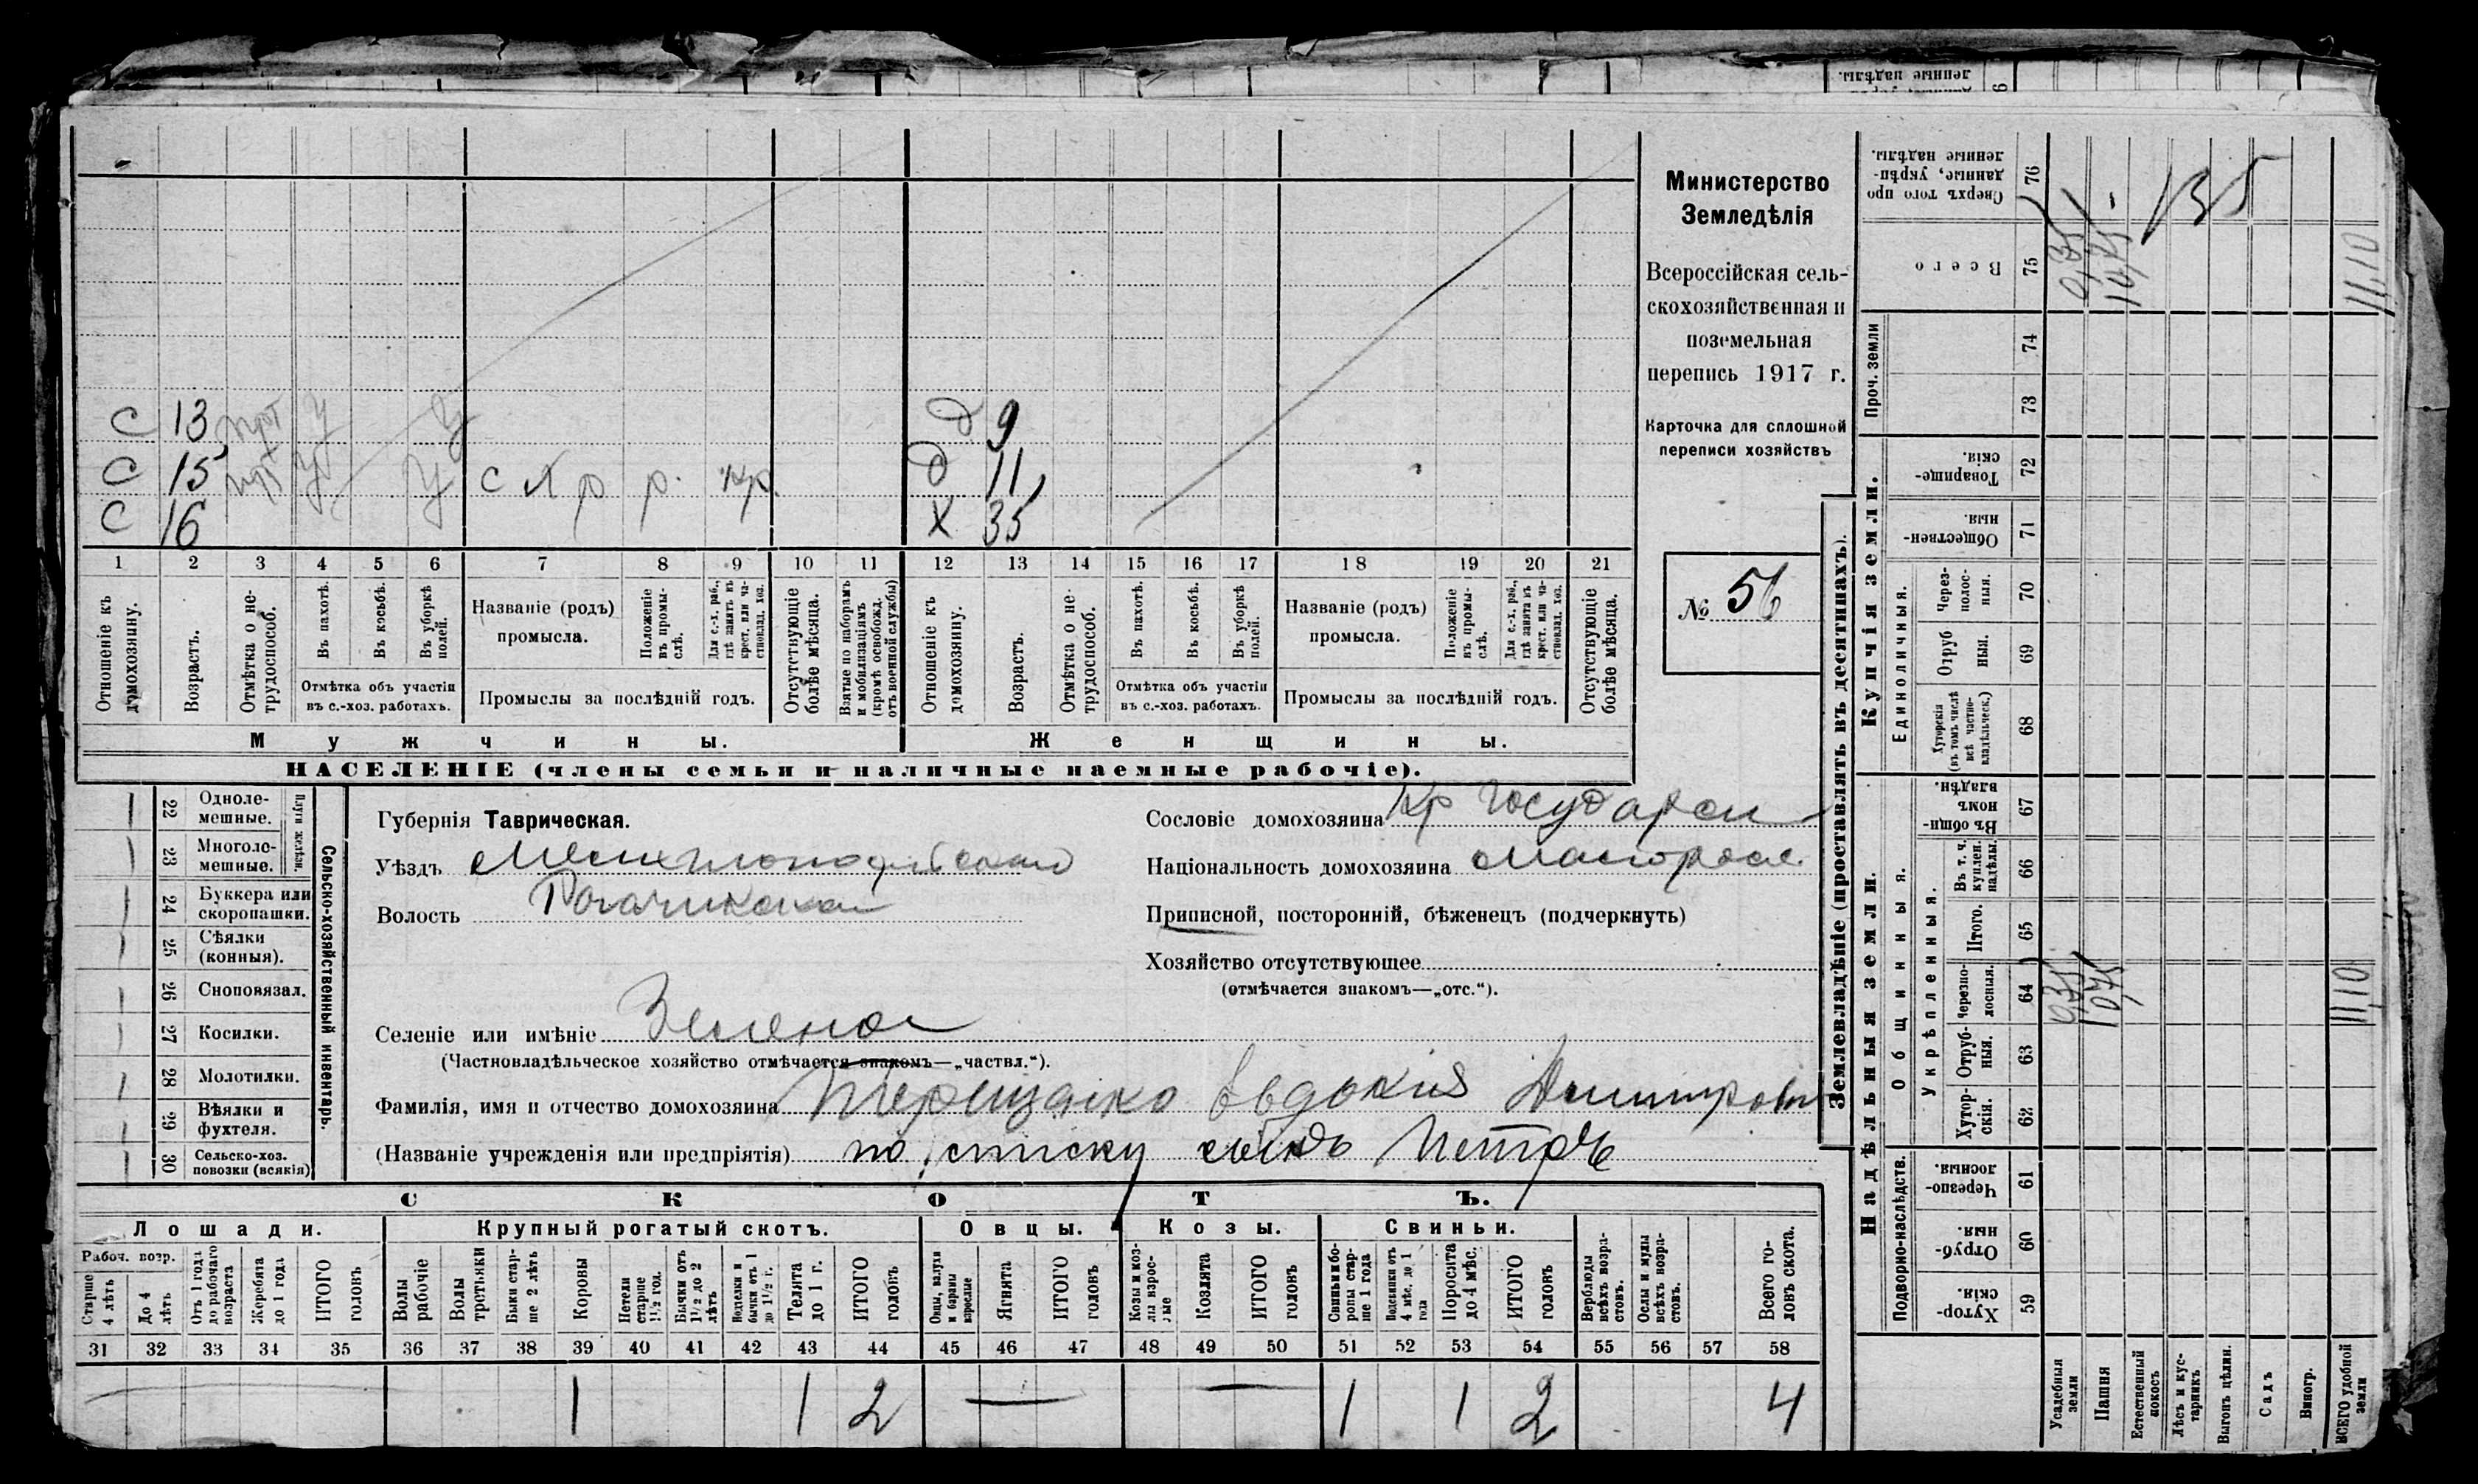 С 13 У У д 9
С 15 У У с х р р. кр. д 11
С 16 х 35
1 2 3 4 5 6 7 8 9 10 11 12 13 14 15 16 17 18 19 20 21
Отношеніе къ домохозяину.
Возрастъ.
Отмѣтка о не-трудоспособ.
Въ пахотѣ.
Въ косьбѣ.
Въ уборкѣ полей.
Отмѣтка объ участіи въ с.-хоз. работахъ.
Названіе (родъ) промысла.
Положеніе въ промы-слѣ.
Для с.-х. раб., гдѣ занятъ въ крест. или ча-стновлад. хоз.
Промыслы за послѣдній годъ.
Отсутствующіе болѣе мѣсяца.
Взятые по наборамъ и мобилизаціямъ (кромѣ освобожд. отъ военной службы)
Отношеніе къ домохозяину.
Возрастъ.
Отмѣтка о не-трудоспособ.
Въ пахотѣ.
Въ косьбѣ.
Въ уборкѣ полей.
Отмѣтка объ участіи въ с.-хоз. работахъ.
Названіе (родъ) промысла.
Положеніе въ промы-слѣ.
Для с.-х. раб., гдѣ занята въ крест. или ча-стновлад. хоз.
Промыслы за послѣдній годъ.
Отсутствующіе болѣе мѣсяца.
Мужчины. Женщины.
НАСЕЛЕНІЕ (члены семьи и наличные наемные рабочіе).
Министерство
Земледѣлія
Всероссійская сель-
скохозяйственная и
поземельная
перепись 1917 г.
Карточка для сплошной
переписи хозяйствъ
№ 56
Сельско-хозяйственный инвентарь.
Плуги желѣзн.
22 Одноле-мешные.
23 Многоле-мешные.
24 Буккера или скоропашки.
25 Сѣялки (конныя).
26 Сноповязал.
27 Косилки.
28 Молотилки.
29 Вѣялки и фухтеля.
30 Сельско-хоз. повозки (всякія)
Губернія Таврическая.
Уѣздъ Мелитопольскаго
Волость Рогачикская
Селеніе или имѣніе Зеленое
(Частновладѣльческое хозяйство отмѣчается знакомъ—„частвл.“).
Фамилія, имя и отчество домохозяина Терещенко Евдокия Дмитров
(Названіе учрежденія или предпріятія) по списку сынъ Петръ
Сословіе домохозяина Кр Государст
Національность домохозяина Малоросс.
Приписной, посторонній, бѣженецъ (подчеркнуть)
Хозяйство отсутствующее
(отмѣчается знакомъ—„отс.“).
СКОТЪ.
Лошади. Крупный рогатый скотъ. Овцы. Козы. Свиньи.
Рабоч. возр.
Старше 4 лѣтъ
До 4 лѣтъ
Отъ 1 года до рабочаго возраста
Жеребята до 1 года
ИТОГО головъ
Волы рабочіе
Волы третьяки
Быки стар-ше 2 лѣтъ
Коровы
Нетели старше 1½ год.
Бычки отъ 1½ до 2 лѣтъ
Подтелки и бычки отъ 1 до 1½ г.
Телята до 1 г.
ИТОГО головъ
Овцы, валухи и бараны взрослые
Ягнята
ИТОГО головъ
Козы и коз-лы взрос-лые
Козлята
ИТОГО головъ
Свиньи и бо-ровы стар-ше 1 года
Подсвинки отъ 4 мѣс. до 1 года
Поросята до 4 мѣс.
ИТОГО головъ
Верблюды всѣхъ возра-стовъ.
Ослы и мулы всѣхъ возра-стовъ.
Всего го-ловъ скота.
31 32 33 34 35 36 37 38 39 40 41 42 43 44 45 46 47 48 49 50 51 52 53 54 55 56 57 58
1 1 2 — — 1 1 2 4
Землевладѣніе (проставлять въ десятинахъ).
Купчія земли.
Надѣльныя земли.
Проч. земли
Единоличныя.
Общинныя.
Укрѣпленныя.
Подворно-наслѣдств.
76 Сверхъ того про данные, укрѣп-ленные надѣлы.
75 Всего
74
73
72 Товарище-скія.
71 Обществен-ныя.
70 Через-полос-ныя.
69 Отруб ныя.
68 Хуторскія (въ томъ числѣ всѣ частно-владѣльческ.)
67 Въ общи-номъ владѣн.
66 Въ т. ч. куплен. надѣлы.
65 Итого.
64 Черезпо-лосныя.
63 Отруб-ныя.
62 Хутор-скія.
61 Черезпо-лосныя.
60 Отруб-ныя.
59 Хутор-скія.
Усадебныя земли
Пашня
Естественный покосъ
Лѣсъ и кус-тарникъ
Выгонъ цѣлин.
Садъ
Виногр.
ВСЕГО удобной земли
0,35 10,75 11,10
0,35 10,75 11,10
135